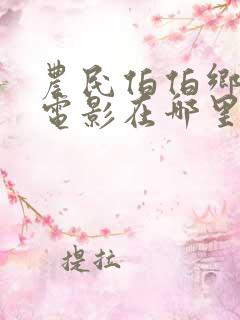 農民伯伯鄉
電影在哪里
提拉